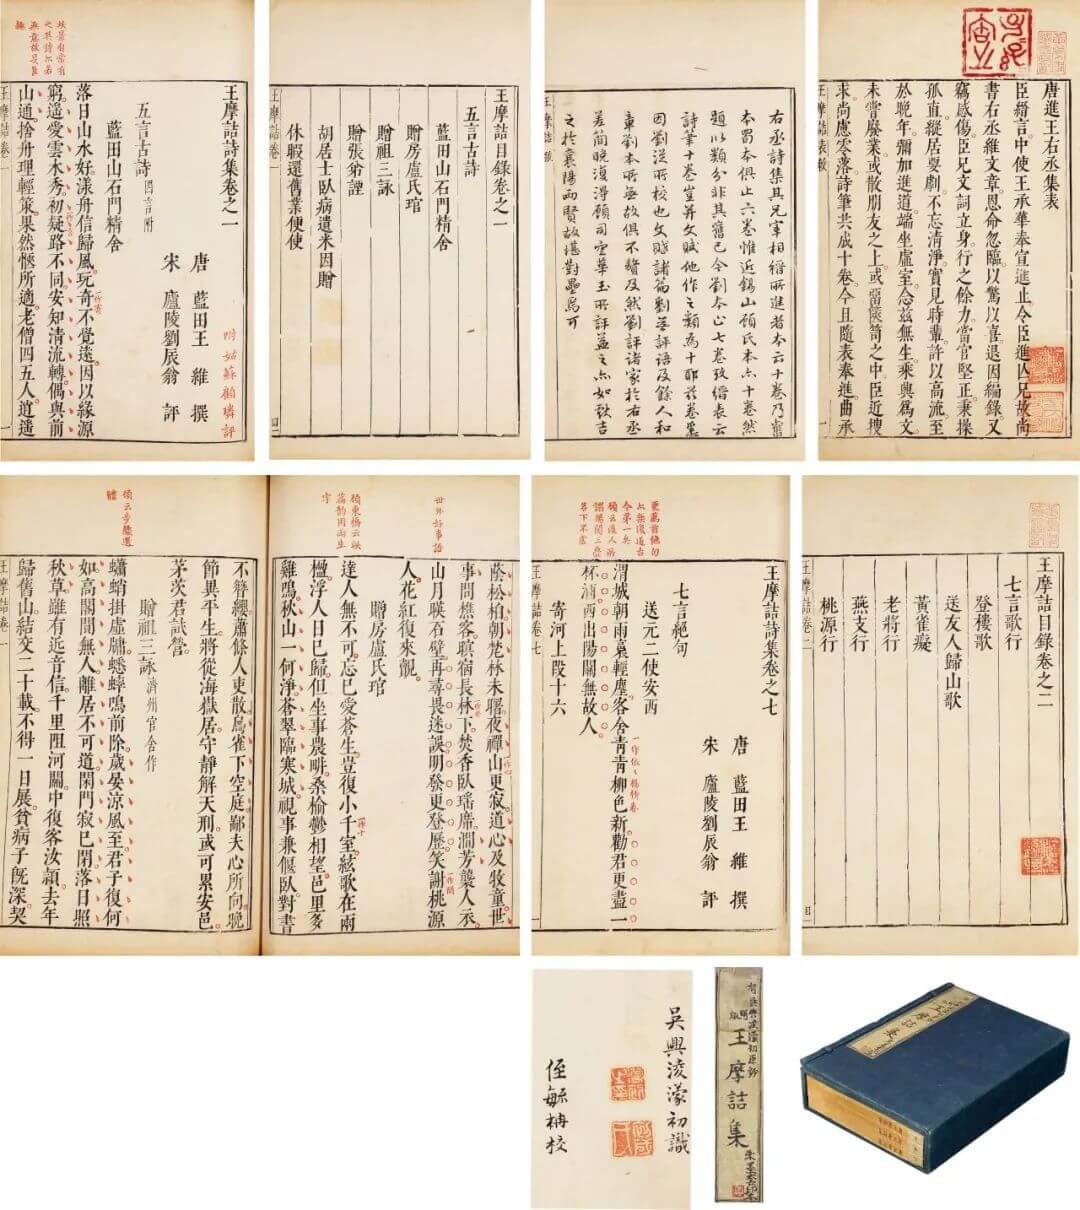 唐進王右丞集表
臣縉言中使王承華奉宣進止令臣進亾兄故尚
書右丞維文章恩命忽臨以驚以喜退因編錄又
竊感傷臣兄文詞立身行之餘力當官堅正秉操
孤直縱居要劇不忘清淨實見時輩許以高流至
於晚年彌加進道端坐虛室念茲無生乘興爲文
未甞廢業或散朋友之上或畱篋笥之中臣近搜
求尚慮零落詩筆共成十卷今且隨表奉進曲承
右丞詩集其兄宰相縉所進者本云十卷乃舊
本蜀本俱止六卷惟近錫山顧氏本六十卷然
題以類分非其舊已今劉本止七卷攷縉表云
詩筆十卷豈并文賦他作之類爲十耶茲卷悉
因劉從所校也文賦諸篇劉無評語及餘人和
章劉本所無故俱不贅及然劉評諸家於右丞
差簡晚復得顧司空華玉所評益之亦如孟吉
之於襄陽兩賢故堪對壘爲可
王摩詰目錄卷之一
五言古詩
藍田山石門精舍
贈房盧氏琯
贈祖三詠
贈張諲
胡居士臥病遺米因贈
休暇還舊業便使
王摩詰卷一
王摩詰詩集卷之一
唐 藍田王 維 撰
宋 廬陵劉辰翁 評
附姑蘇顧璘評
五言古詩 四言附
藍田山石門精舍
落日山水好漾舟信歸風玩奇不覺遠因以緣源
窮遥愛雲木秀初疑路不同安知清流轉偶與前
山通捨舟理輕策果然愜所適老僧四五人逍遥
王摩詰卷一
王摩詰目錄卷之二
七言歌行
登樓歌
送友人歸山歌
黃雀癡
老將行
燕支行
桃源行
王摩詰卷二
王摩詰詩集卷之七
唐 藍田王 維 撰
宋 廬陵劉辰翁 評
七言絕句
送元二使安西
渭城朝雨裛輕塵客舍青青柳色新勸君更盡一
杯酒西出陽關無故人
寄河上段十六
王摩詰卷七
世外好事語
蔭松柏朝梵林未曙夜禪山更寂道心及牧童世
事問樵客暝宿長林下焚香臥瑶席澗芳襲人衣
山月映石壁再尋畏迷誤明發更登歷笑謝桃源
人花紅復來覿
贈房盧氏琯
達人無不可忘已愛蒼生豈復小千室絃歌在兩
楹浮人日已歸但坐事農畊桑榆鬱相望邑里多
雞鳴秋山一何淨蒼翠臨寒城視事兼偃臥對書
不簪纓蕭條人吏散鳥雀下空庭鄙夫心所向晚
節異平生將從海嶽居守靜解天刑或可累安邑
茅茨君試營
贈祖三詠 濟州官舍作
蠨蛸掛虛牖蟋蟀鳴前除歲晏涼風至君子復何
如高閣閒無人離居不可道閑門寂已閉落日照
秋草雖有近音信千里阻河關中復客汝潁去年
歸舊山結交二十載不得一日展貧病子旣深契
王摩詰卷一
吳興淩濛初識
侄毓枏校
王摩詰集